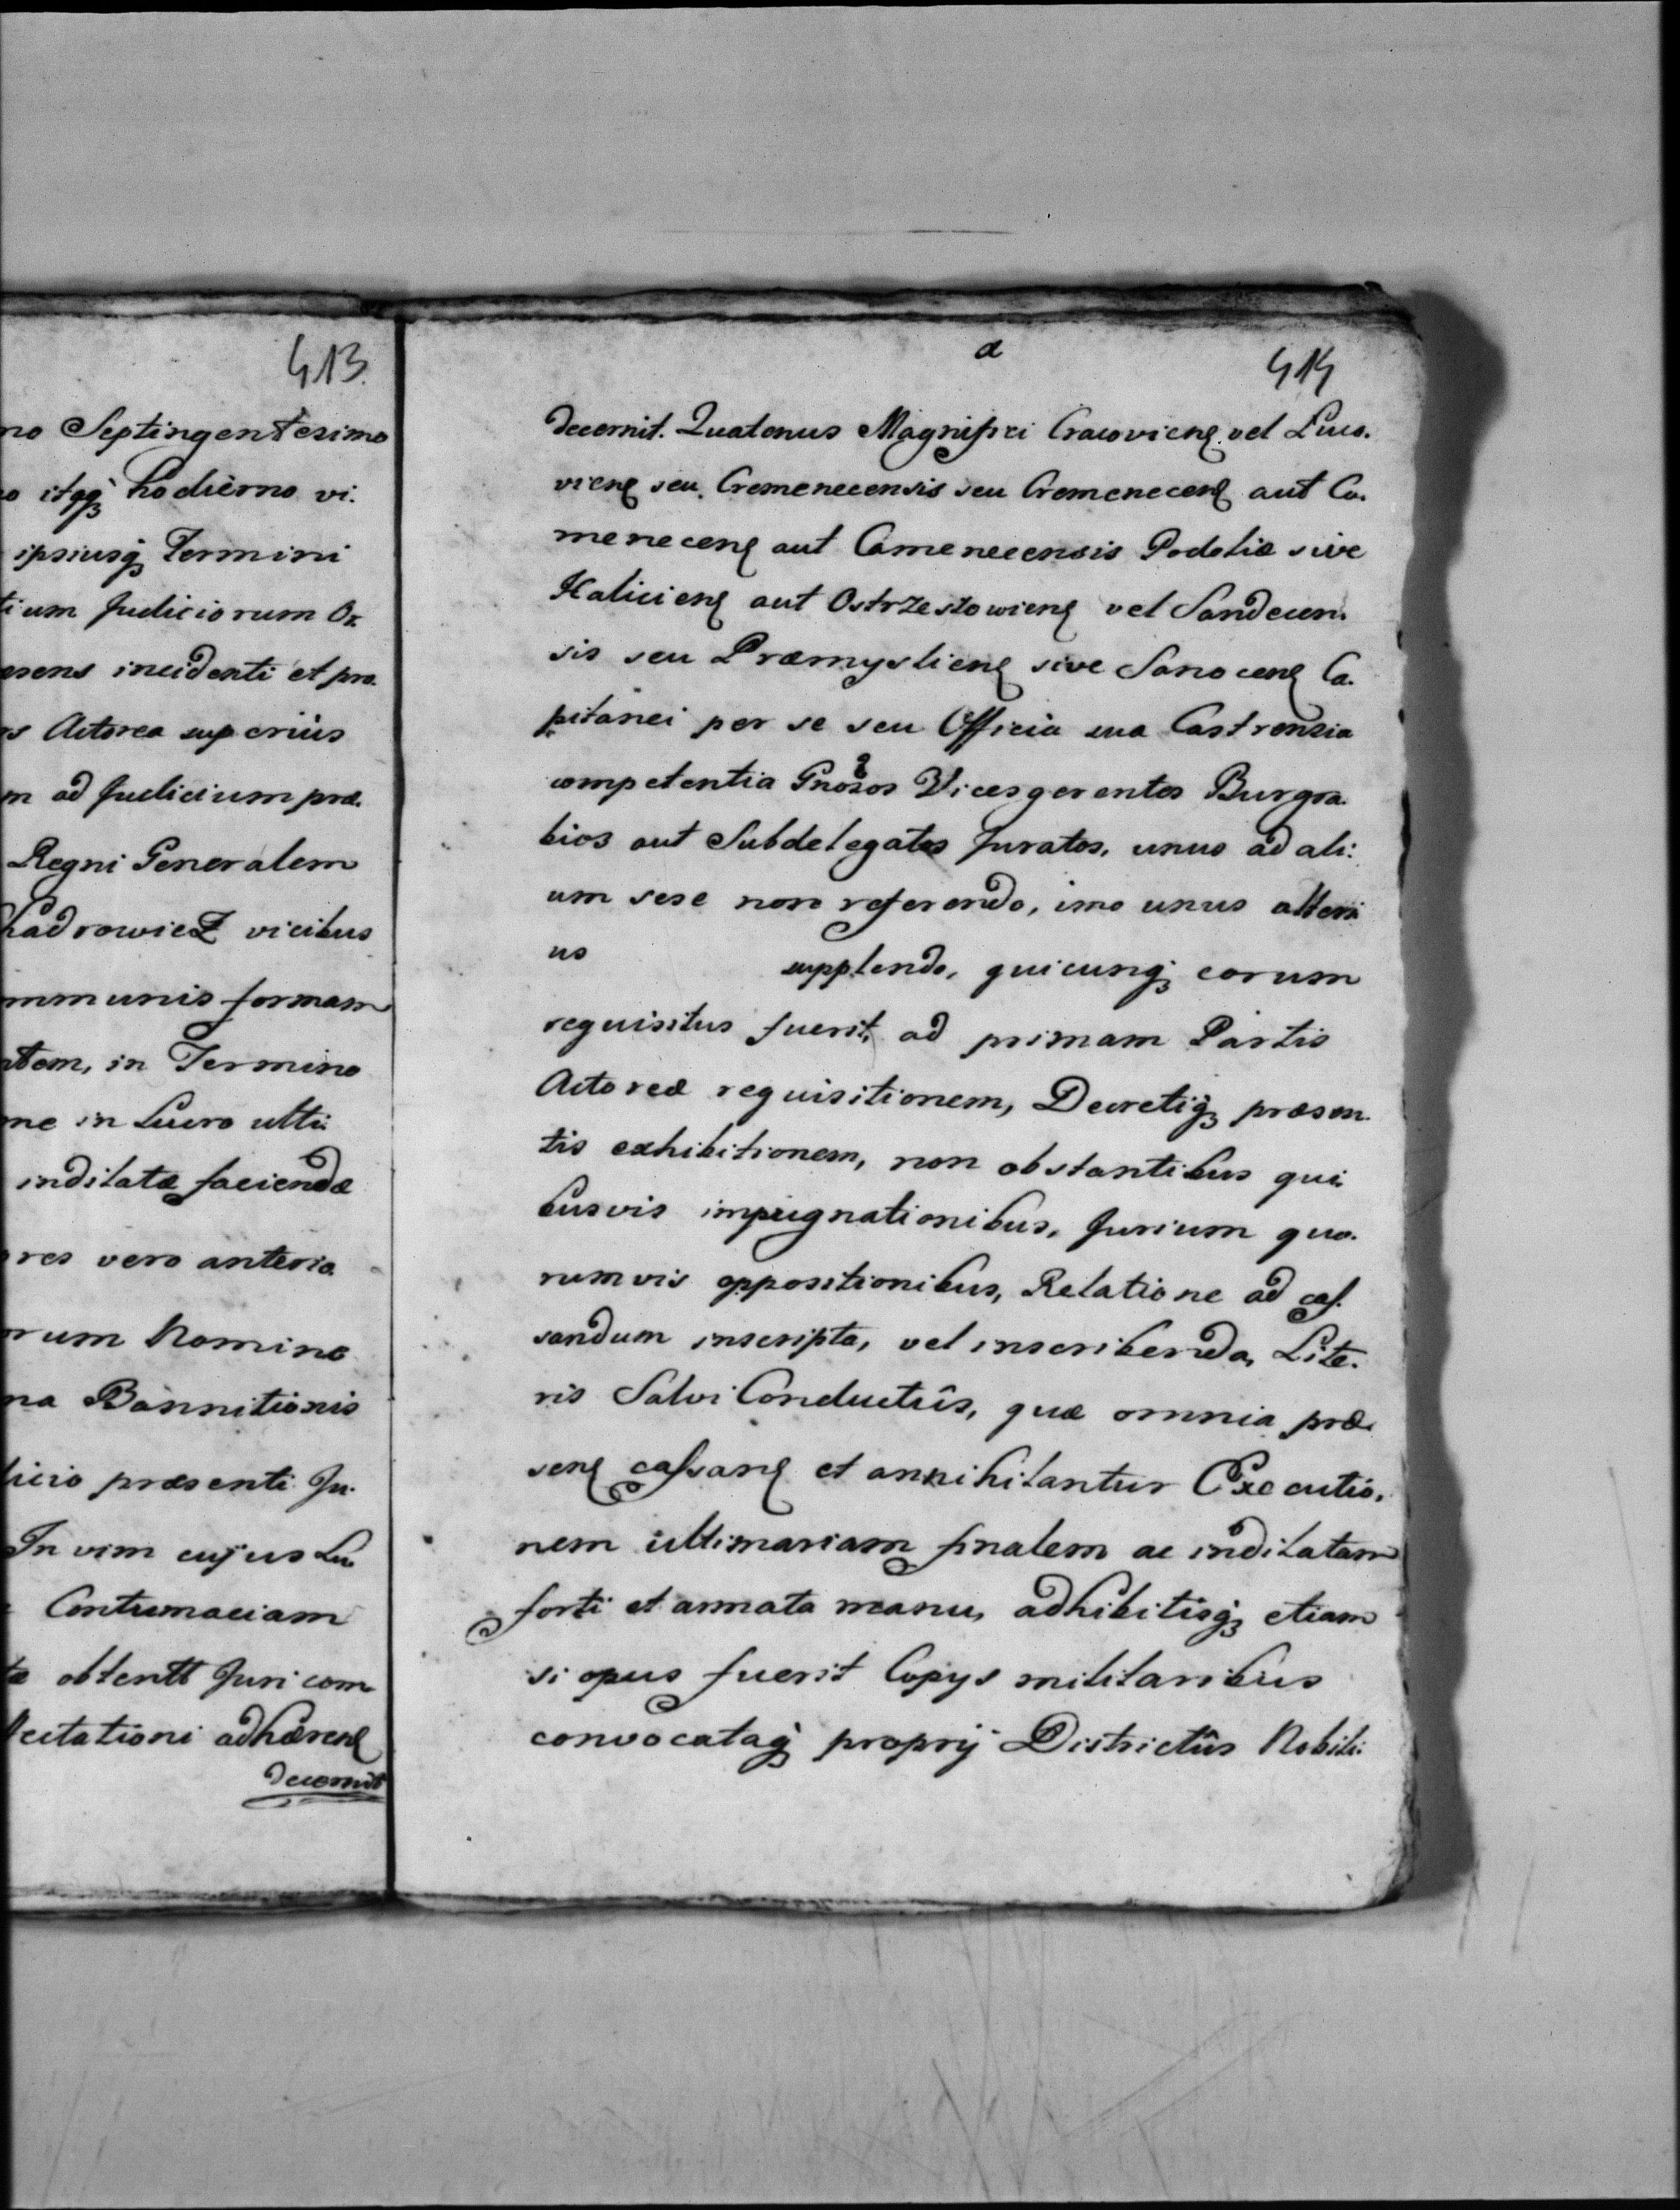 413.
no Septingentesimo
o itqꝫ hodierno vi.
ipsiusqꝫ Termini
tium Judiciorum Or
esens incidenti et pro.
s Actorea superius
m ad Judicium præ.
Regni Generalem
hadrowicz vicibus
mmunis formam
ntem, in Termino
one in Lucro ulti:
inditatæ faciendæ
ores vero anterio.
orum Nomine
na Bannitionis
dicio præsenti Ju.
In vim cujus Lu
Contumaciam
te obtentt Juri com
Recitationi adhæreñ
decernit
a
414
decernit. Quatenus Magnifici Cracovieñ. vel Luco.
vieñ seu Cremenecensis seu Cremeneceñ aut Ca.
meneceñ aut Camenecensis Podoliæ sive
Halicieñ aut Ostrzeszowieñ vel Sandecen.
sis seu Præmyslieñ sive Sanoceñ Ca.
pitanei per se seu Officia sua Castrensia
competentia Gnosos Vicesgerentes Burgra.
bios aut Subdelegatos Juratos, unus ad ali:
um sese non referendo, imo unus alteri
us supplendo, quicunqꝫ eorum
requisitus fuerit, ad primam Partis
Actoreæ requisitionem, Decretiqꝫ præsen.
tis exhibitionem, non obstantibus qui
busvis impugnationibus, Jurium quo.
rumvis oppositionibus, Relatione ad cas.
sandum inscripta, vel inscribenda, Lite.
ris Salvi Conductûs, quæ omnia præ
señ cassañ et annihilantur Executio.
nem ultimariam finalem ac inditatam
forti et armata manu, adhibitisqꝫ etiam
si opus fuerit Copijs militaribus
convocataqꝫ proprij Districtûs Nobili: